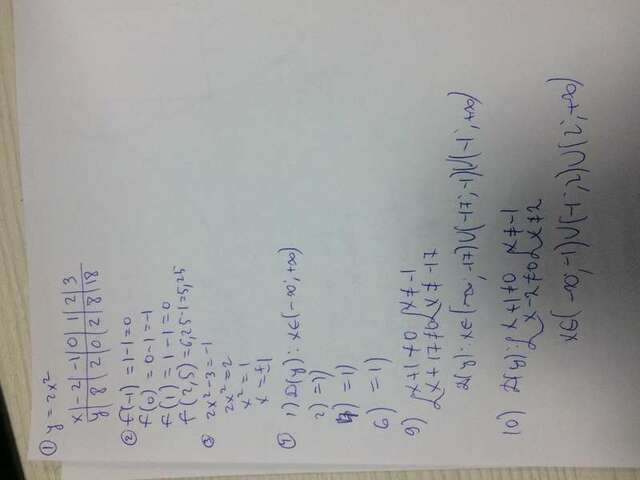 ① y = 2x²
x | -2 | -1 | 0 | 1 | 2 | 3
y | 8 | 2 | 0 | 2 | 8 | 18
② f(-1) = 1-1=0
f(0) = 0-1=-1
f(1) = 1-1=0
f(2,5)=6,25-1=5,25
③ 2x²-3=-1
2x²=2
x²=1
x=±1
④ 1) D(y): x∈(-∞;+∞)
2) =1)
4) =1)
6) =1)
9) { x+1≠0 { x≠-1
{ x+17≠0 { x≠-17
D(y): x∈(-∞;-17)∪(-17;-1)∪(-1;+∞)
10) D(y): { x+1≠0 { x≠-1
{ x-2≠0 { x≠2
x∈(-∞;-1)∪(-1;2)∪(2;+∞)